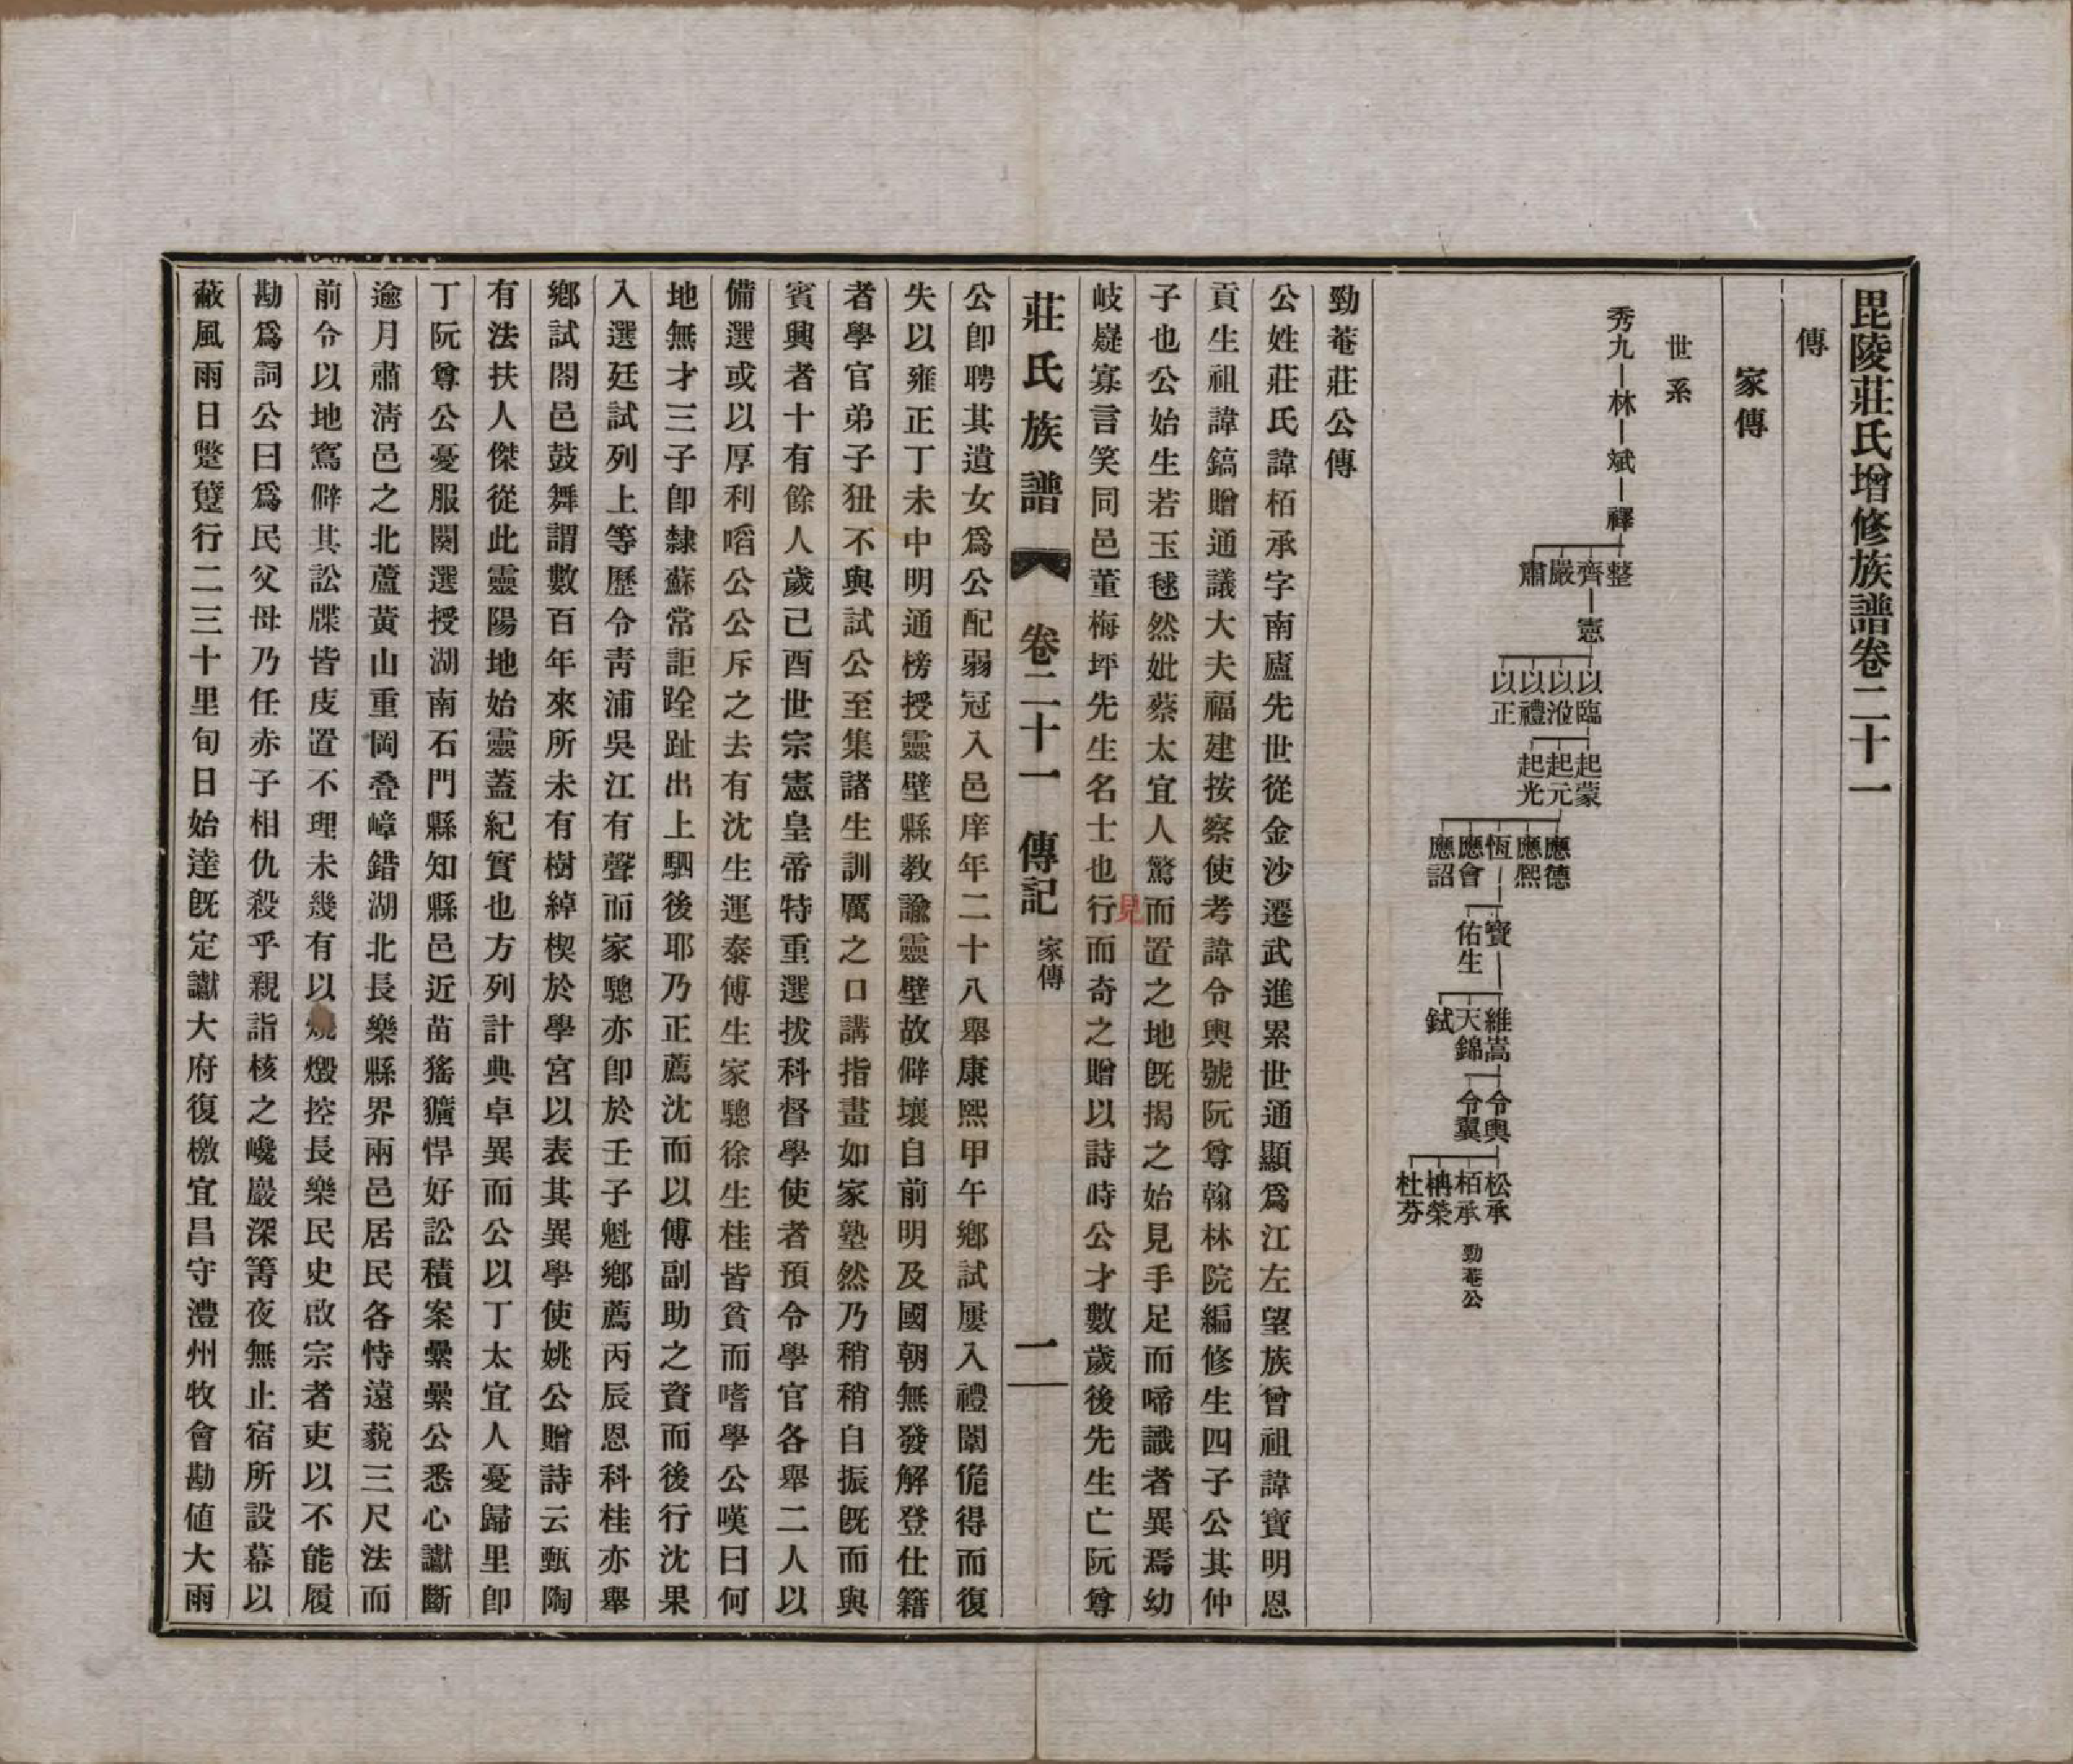 毘陵莊氏增修族譜卷二十一
傳
家傳
世系
秀九 林 斌 襗
整 齊 嚴 肅
憲
以臨 以涖 以禮 以正
起蒙 起元 起光
應德 應熙 恆 應會 應詔
寶 佑生
維嵩 天錦 鉽
令輿 令翼
松承 栢承 柟榮 杜芬
勁菴公
勁菴莊公傳
公姓莊氏諱栢承字南廬先世從金沙遷武進累世通顯爲江左望族曾祖諱寶明恩
貢生祖諱鎬贈通議大夫福建按察使考諱令輿號阮尊翰林院編修生四子公其仲
子也公始生若玉毬然妣蔡太宜人驚而置之地旣揭之始見手足而啼識者異焉幼
岐嶷寡言笑同邑董梅坪先生名士也行而奇之贈以詩時公才數歲後先生亡阮尊
見
莊氏族譜 卷二十一 傳記 家傳 一
公卽聘其遺女爲公配弱冠入邑庠年二十八舉康熙甲午鄉試屢入禮闈佹得而復
失以雍正丁未中明通榜授靈壁縣教諭靈壁故僻壤自前明及國朝無發解登仕籍
者學官弟子狃不與試公至集諸生訓厲之口講指畫如家塾然乃稍稍自振旣而與
賓興者十有餘人歲己酉世宗憲皇帝特重選拔科督學使者預令學官各舉二人以
備選或以厚利啗公公斥之去有沈生運泰傅生家驄徐生桂皆貧而嗜學公嘆曰何
地無才三子卽隸蘇常詎跧趾出上駟後耶乃正薦沈而以傅副助之資而後行沈果
入選廷試列上等歷令靑浦吳江有聲而家驄亦卽於壬子魁鄉薦丙辰恩科桂亦舉
鄉試闔邑鼓舞謂數百年來所未有樹綽楔於學宮以表其異學使姚公贈詩云甄陶
有法扶人傑從此靈陽地始靈蓋紀實也方列計典卓異而公以丁太宜人憂歸里卽
丁阮尊公憂服闋選授湖南石門縣知縣邑近苗猺獷悍好訟積案纍纍公悉心讞斷
逾月肅淸邑之北蘆黃山重岡疊嶂錯湖北長樂縣界兩邑居民各恃遠藐三尺法而
前令以地寫僻其訟牒皆庋置不理未幾有以燒燬控長樂民史啟宗者吏以不能履
勘爲詞公曰爲民父母乃任赤子相仇殺乎親詣核之巉巖深箐夜無止宿所設幕以
蔽風雨日蹩躠行二三十里旬日始達旣定讞大府復檄宜昌守澧州牧會勘値大雨